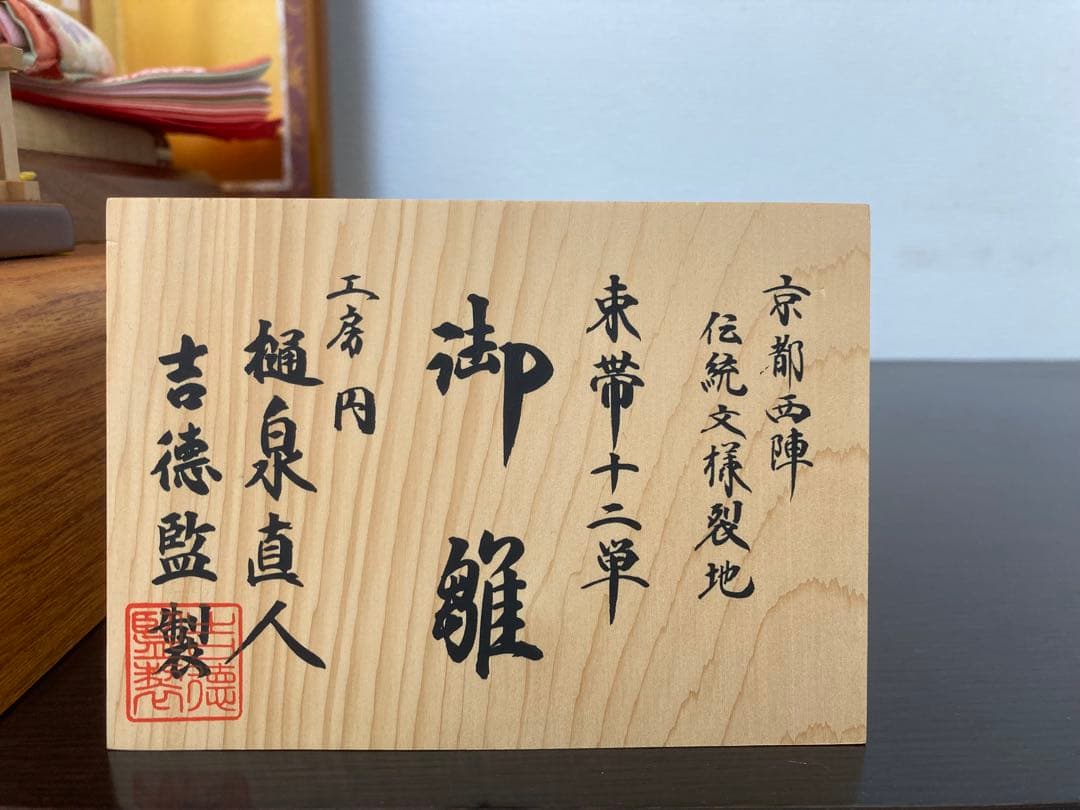 京都西陣
伝統文様裂地
束帯十二単
御雛
工房 円
樋泉直人
吉徳監製
吉徳監製